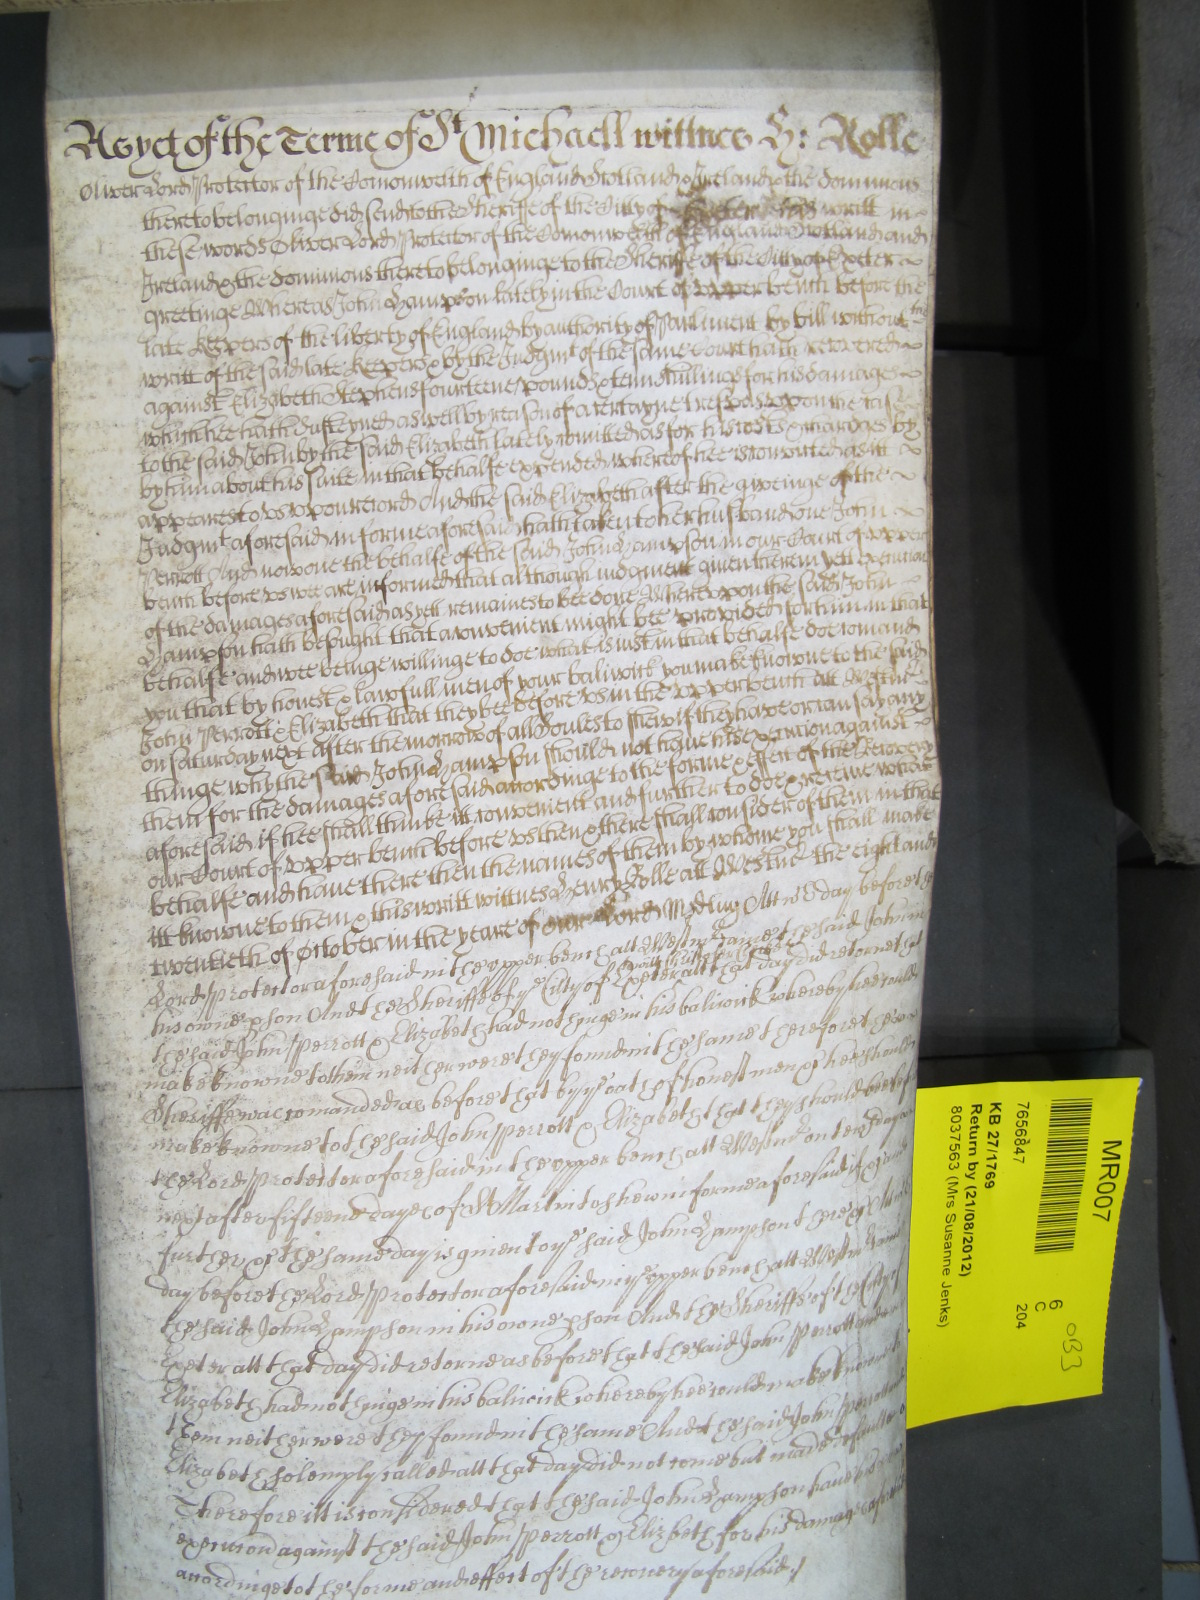 As yet of the Terme of St Michaell wittnes H: Rolle
Oliver Lord Protector of the Comonwelth of England Scotland & Ireland & the dominions
thereto belonginge did send to the Sheriffe of the Citty of Exeter his writt in
these words Oliver Lord Protector of the Comonwelth of England Scotland and
Ireland & the dominions thereto belonginge to the Sherife of the Citty of Exeter
greetinge Whereas John Hampson lately in the Court of upper bench before the
late Keepers of the liberty of England by authority of Parliment by bill without the
writt of the said late Keepers & by the Judgmt of the same Court hath recovered
against Elizabeth Stephens fourteene pounds & tenn shillings for his damages
which hee hath susteyned aswell by reason of a certayne trespas upon the case
to the said John by the said Elizabeth lately comitted as for his costs & chardges by
by him about his suite in that behalfe expended whereof shee is convicted as itt
appeares to us upon record And the said Elizabeth after the giveinge of the
Judgmt aforesaid in forme aforesaid hath taken to her husband one John
Perrott And now one the behalfe of the said John Hampson in our Court of upper
bench before us wee are informed that although judgment given therein yett execution
of the damages aforesaid as yett remaines to bee done Whereupon the said John
Hampson hath besought that a convenient might bee provided for him in that
behalfe and wee beinge willinge to doe what is iust in that behalfe doe comand
you that by honest & lawfull men of your baliwick you make knowne to the said
John Perrott & Elizabeth that they bee before us in the upper bench att Westmr
on Saturday next after the morrow of all Soules to shew if they have or can say any
thinge why the said John Hampson should not have his execution against
them for the damages aforesaid accordinge to the forme & effect of the Recovery
aforesaid if hee shall thinke itt convenient and further to doe & receive what
our Court of upper bench before us then & there shall consider of them in that
behalfe and have there then the names of them by whome you shall make
itt knowne to them & this writt wittnes Henry Rolle att Westmr the eight and
twentieth of October in the yeare of our Lord Att wch day before the
Lord Protector aforesaid in the upper bench att Westmr came the said John in
his owne pson And the Sheriffe of ye Citty of Exeter att that day did retorne that
the said John Perrott & Elizabeth had nothinge in his baliwick whereby hee could
make knowne to them neither were they found in the same therefore the
Sheriffe was comanded as before that by ye oath of honest men &c hee should
make knowne to the said John Perrott & Elizabeth that they should bee before
the Lord Protector aforesaid in the upper bench att Westmr on tewsday
next after fifteene dayes of St Martin to shew in forme aforesaid if &c and
further &c the same day is given to ye said John Hampson there &c Att wch
day before the Lord Protector aforesaid in ye upper bench att Westmr came
the said John Hampson in his owne pson And the Sheriffe of the Citty of
Exeter att that day did retorne as before that the said John Perrott and
Elizabeth had nothinge in his baliwick whereby hee could make knowne to
them neither were they found in the same And the said John Perrott and
Elizabeth solemply called att that day did not come but made default
Therefore itt is considered that the said John Hampson have his
execucion against the said John Perrott & Elizbeth for his damages aforesaid
accordinge to the forme and effect of the recovery aforesaid &c
MR007
6
C
204
7656847
KB 27/1769
Return by (21/08/2012)
8037563 (Mrs Susanne Jenks)